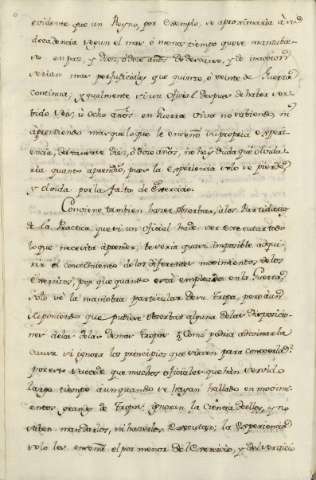 evidente que un Reyno, por exemplo, se aproximaria à su
decadencia segun el mas ó menos tiempo que se mantubie-
se en paz, y diez, ó doze años de descanso, y de inaccion
serian mas perjudiciales que quinze, ó veinte de Guerra
continua; ygualmente si un Oficial despues de haber
servido seis, ù ocho años en Guerra viva no sabiendo, ni
aprendiendo mas que lo que le enseñó su propia experi-
encia, descansare diez, ó doze años, no hay duda que olvida-
ria quanto aprendió, pues la experiencia solo se pierde,
y olvida por la falta de Exercicio.
Conviene tambien hazer observar, à los Partidarios
de la Practica, que si un Oficial hade ver executar todo
lo que necesita aprender, le seria quasi imposible adqui-
rir el conocimiento de los diferentes movimientos de los
Exercitos, por que quando está empleado en la Guerra
solo vé la maniobra particular de su tropa, pero aun
suponiendo que pudiese observar alguna de las disposicio-
nes de las demas tropas ¿Como podria discernir la
causa si ignora los principios que sirven para conocerla?
por esto sucede que muchos oficiales que han servido
largo tiempo aun quando se hayan hallado en movimi-
entos grandes de tropas, ignoran la Ciencia de ellos, y no
saben mandarlos, ni hazerlos executar; la experiencia
solo les enseña el por menor de el Exercicio, y del servicio